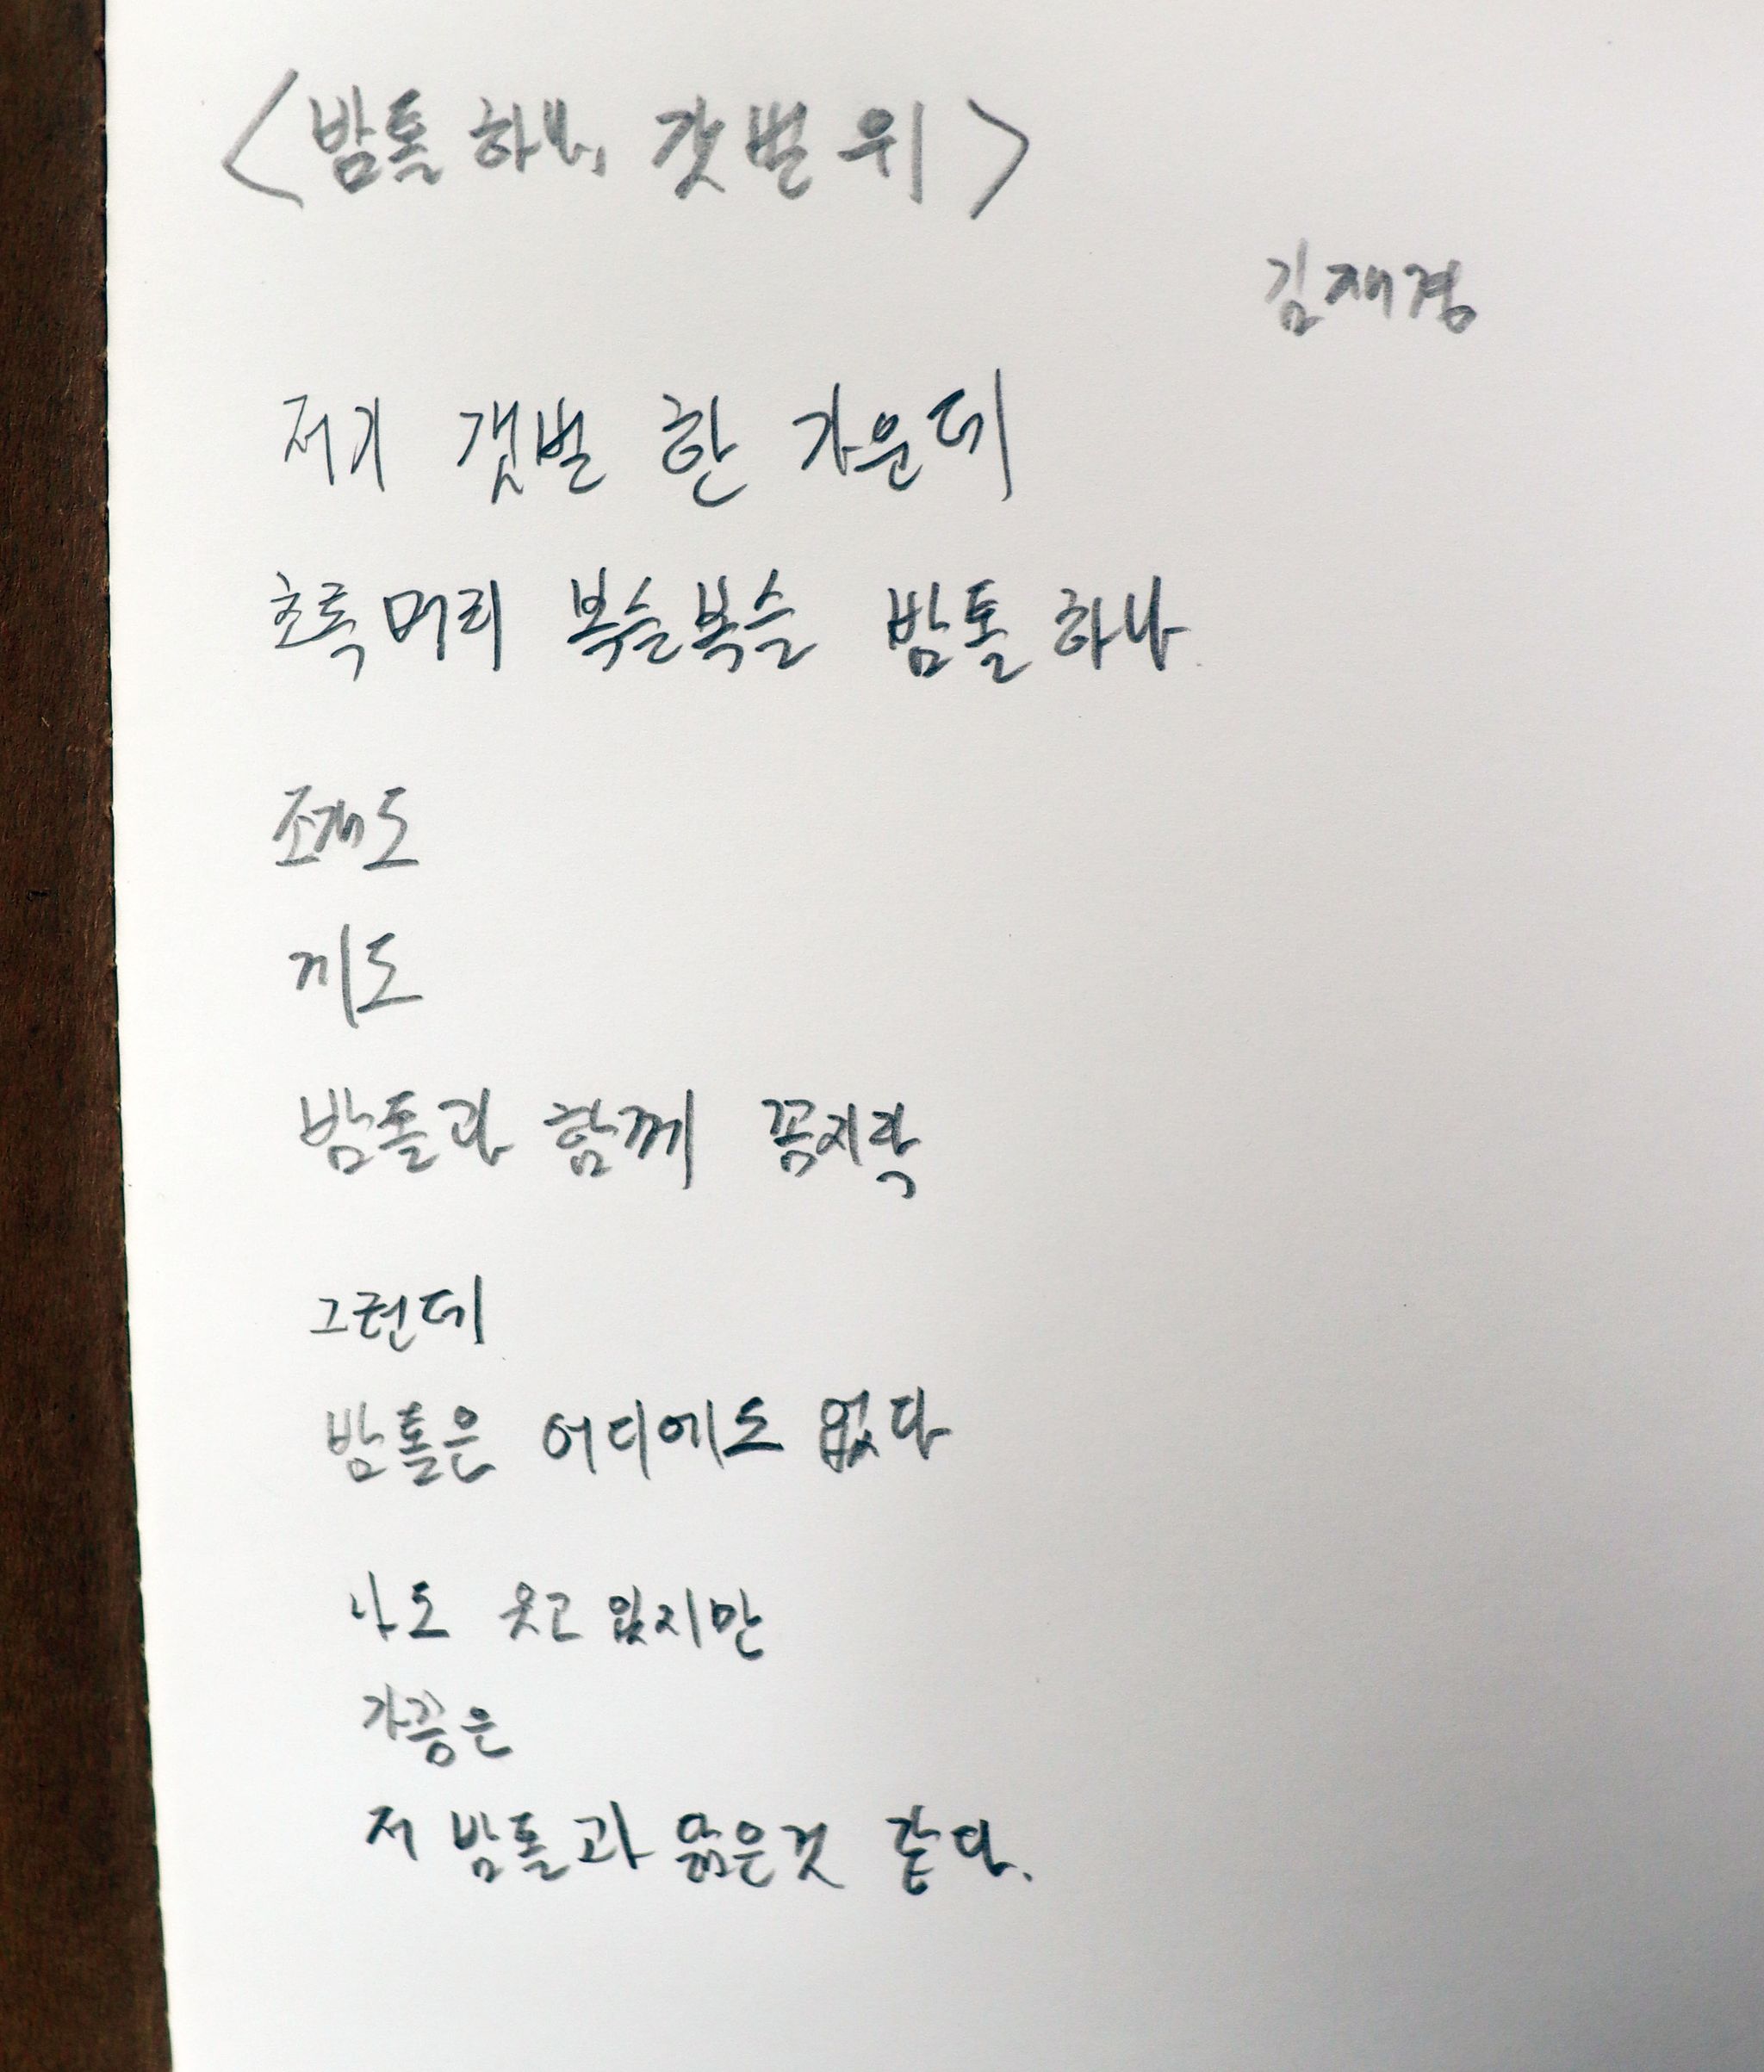 <밤톨 하나, 갯벌 위>
김재경
저기 갯벌 한 가운데
초록머리 복슬복슬 밤톨 하나.
조개도
게도
밤톨과 함께 꼼지락
그런데
밤톨은 어디에도 없다
나도 웃고 있지만
가끔은
저 밤톨과 닮은것 같다.